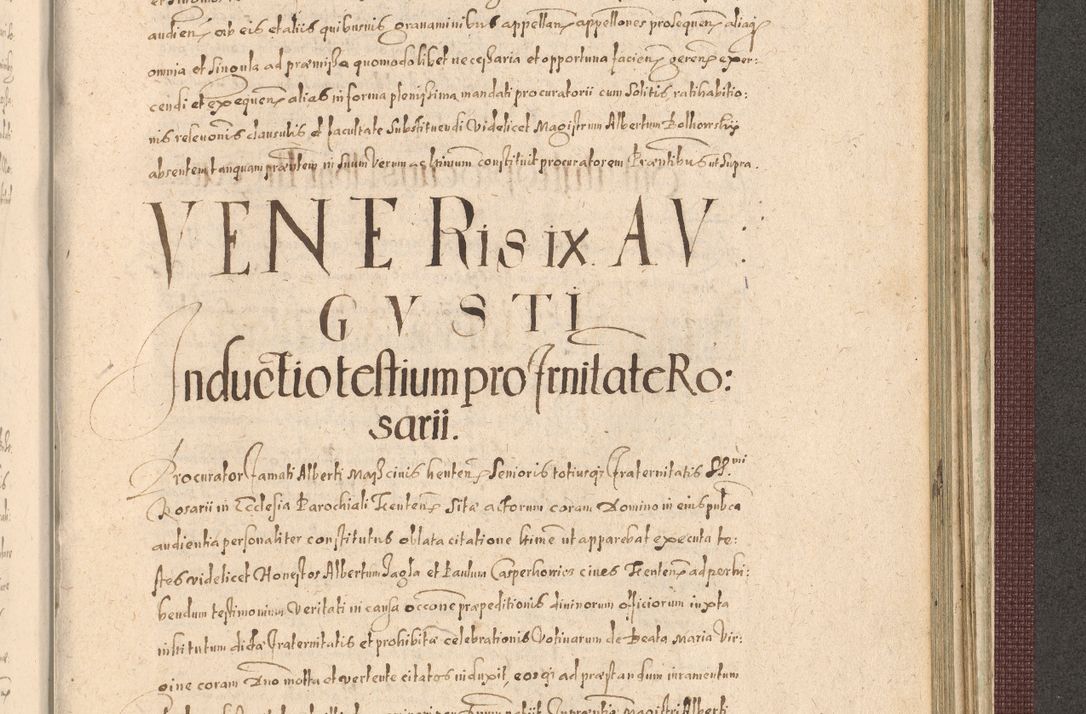 audien ab eis et aliis quibusvis gravaminibus appellan appellones prosequen aliaq
omnia et singula ad præmissa quomodolibet necessaria et opportuna facien geren exer:
cendi et exequen alias in forma plenissima mandati procuratorii cum solitis ratihabitio:
nis relevonis clausulis et facultate substituendi videlicet Magistrum Albertum Bolhowsky
absentem tanquam præntem in suum verum ac ltimum constituit procuratorem Præntibus ut supra.
VENERis ix AV:
GVSTI
Inductio testium pro frnitate Ro:
sarii.
Procurator famati Alberti civis kenten senioris totiusq fraternitatis SS.mi
Rosarii in Ecclesia Parochiali Kenten sitæ actorum coram Domino in eius pubca
audientia personaliter constitutus oblata citatione ltime ut apparebat executa te:
stes videlicet Honestos Albertum Jagla et Paulum Casperkowicz cives Kenten ad perhi:
bendum testimonium veritati in causa occone præpeditionis divinorum officiorum iuxta
institutum dictæ fraternitatis et prohibitæ celebrationis votivarum de Beata Maria Vir:
gine coram Dno motta et vertente citatos induxit, eosq ad præstandum iuramentum